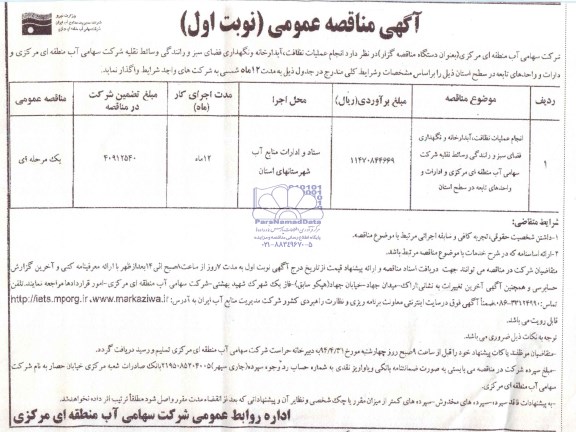 آگهی مناقصه عمومی (نوبت اول)
وزارت نیرو
شرکت مدیریت منابع آب ایران
شرکت سهامی آب منطقه ای مرکزی
شرکت سهامی آب منطقه ای مرکزی(بعنوان دستگاه مناقصه گزار)در نظر دارد انجام عملیات نظافت،آبدارخانه ونگهداری فضای سبز و رانندگی وسائط نقلیه شرکت سهامی آب منطقه ای مرکزی و
دارات و واحدهای تابعه در سطح استان ذیل را براساس مشخصات وشرایط کلی مندرج در جدول ذیل به مدت ۱۲ماه شمسی به شرکت های واجد شرایط واگذار نماید.
ردیف
موضوع مناقصه
مبلغ برآوردی(ریال)
محل اجرا
مدت اجرای کار (ماه)
مبلغ تضمین شرکت در مناقصه
مناقصه عمومی
۱
انجام عملیات نظافت،آبدارخانه و نگهداری
فضای سبز و رانندگی وسائط نقلیه شرکت
سهامی آب منطقه ای مرکزی و ادارات و
واحدهای تابعه در سطح استان
۱۱۴۷۰۸۴۴۶۴۹
ستاد و ادارات منابع آب
شهرستانهای استان
۱۲ماه
۴۰۹۱۲۵۴۰
یک مرحله ای
ParsNamadData
۰۲۱-۸۸۳۴۹۶۷۰-۵
شرایط متقاضی:
۱-داشتن شخصیت حقوقی،تجربه کافی و سابقه اجرائی مرتبط با موضوع مناقصه.
۲-ارائه اساسنامه که در شرح خدمات با موضوع مناقصه مرتبط باشد.
متقاضیان شرکت در مناقصه می توانند جهت دریافت اسناد مناقصه و ارائه پیشنهاد قیمت از تاریخ درج آگهی نوبت اول به مدت ۷روز از ساعت ۸صبح الی ۱۴بعدازظهر با ارائه معرفینامه کتبی و آخرین گزارش
حسابرسی و همچنین آگهی آخرین تغییرات به نشانی:اراک-میدان جهاد-خیابان جهاد(هپکو سابق)-فاز یک شهرک شهید بهشتی-شرکت سهامی آب منطقه ای مرکزی-امور قراردادها مراجعه نمایند.تلفن
تماس:۳۳۱۲۴۹۹۰-۰۸۶.ضمناً آگهی فوق درسایت اینترنتی معاونت برنامه ریزی و نظارت راهبردی کشور شرکت مدیریت منابع آب ایران به آدرس: http://iets.mporg.ir ،www.markaziwa.ir
قابل رویت می باشد.
توجه به نکات ذیل ضروری می باشد.
-متقاضیان موظفند پاکات پیشنهاد خود را قبل از ساعت ۹ صبح روز چهارشنبه مورخ ۹۴/۴/۳۱ به دبیرخانه حراست شرکت سهامی آب منطقه ای مرکزی تسلیم و رسید دریافت گردد.
-مبلغ سپرده شرکت در مناقصه می بایستی به صورت ضمانتنامه بانکی ویاواریز نقدی به شماره حساب رد وجوه سپرده/جاری سپهر/۰۲۱۹۵۰۸۵۲۰۴۰۰۵بانک صادرات شعبه مرکزی خیابان حصار به نام شرکت
سهامی آب منطقه ای مرکزی.
-به پیشنهادات فاقد سپرده،سپرده های مخدوش،سپرده های کمتر از میزان مقرر یا چک شخصی و نظایر آن و پیشنهاداتی که بعد از انقضاء مدت مقرر واصل شود مطلقاً ترتیب اثر داده نخواهدشد.
اداره روابط عمومی شرکت سهامی آب منطقه ای مرکزی